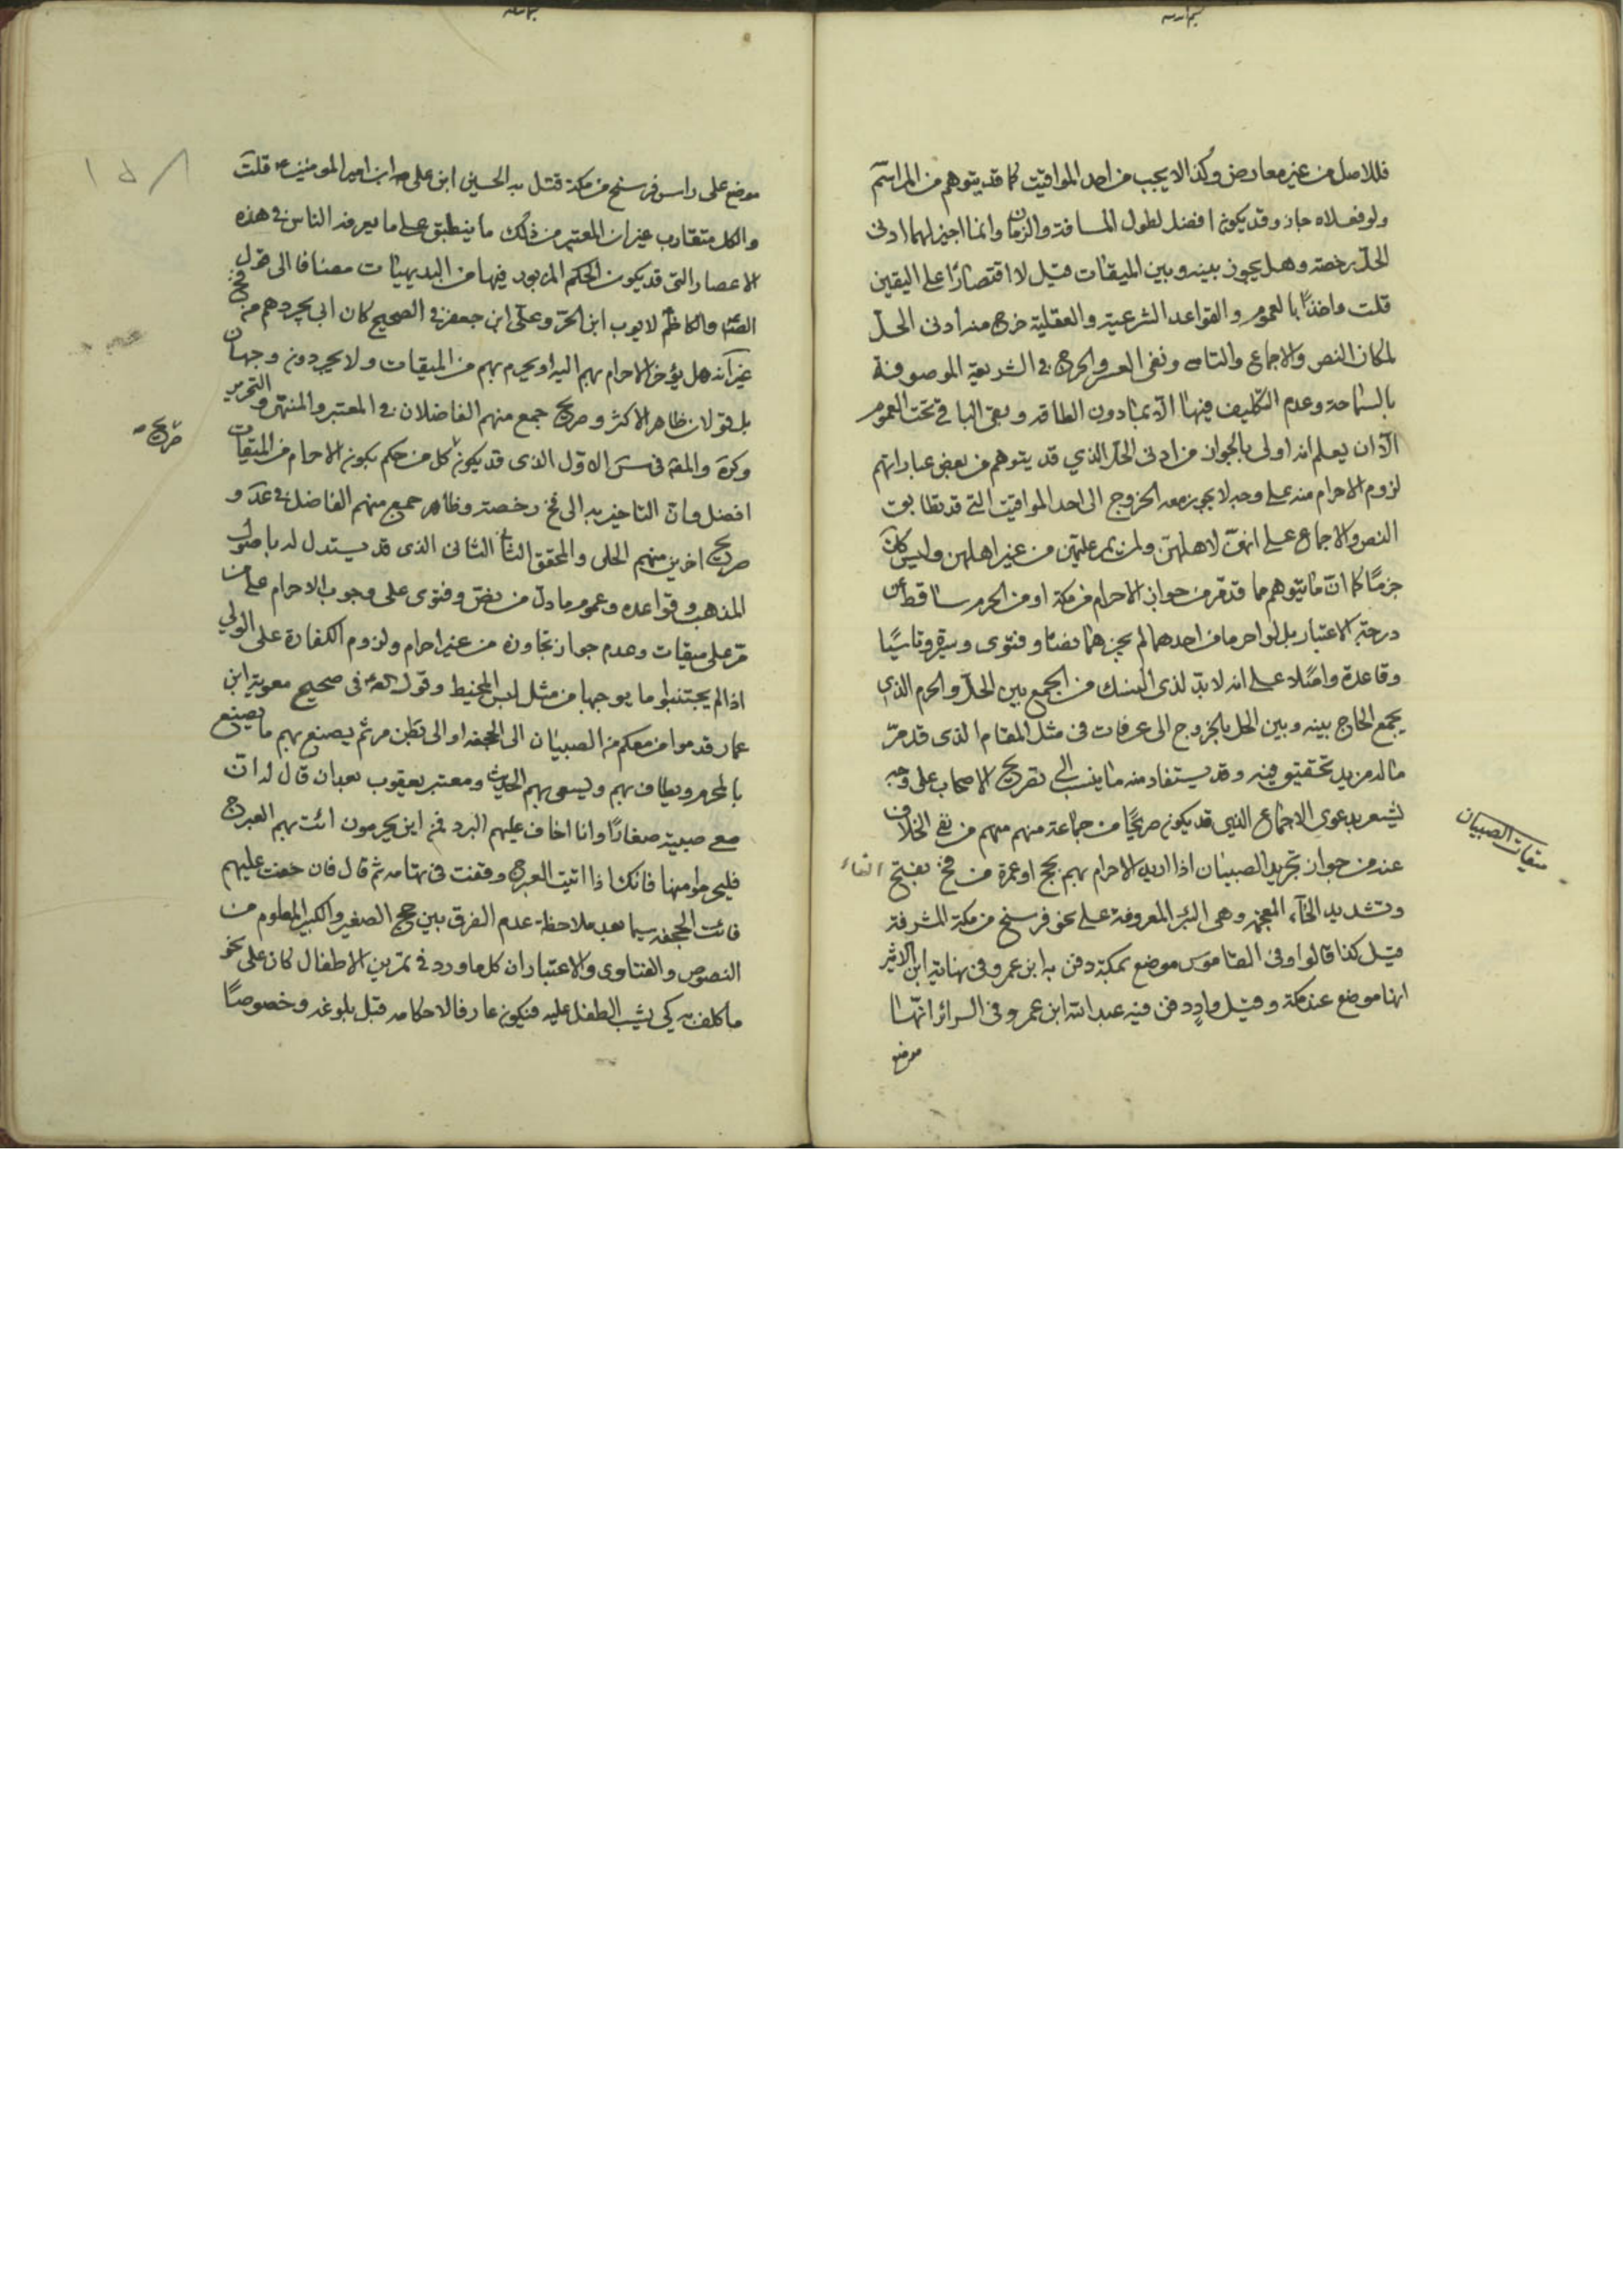 فللاصل من غير معارض وكذا لا يجب من احد المواقيت كما قد يتوهم من المراسم
ولو فعلاه جاز وقد يكون افضل لطول المسافة والزمان وانما اجيز لهما ادنى
الحل رخصة وهل يجوز بينه وبين الميقات قيل لا اقتصارًا على اليقين
قلت واخذًا بالعموم والقواعد الشرعية والعقلية خرج منه ادنى الحل
لمكان النص والاجماع والتاسى ونفى العسر والحرج فى الشريعة الموصوفة
بالسماحة وعدم التكليف فيها الا بما دون الطاقه وبقى الباقى تحت العموم
الا ان يعلم انه اولى بالجواز من ادنى الحل الذي قد يتوهم من بعض عباراتهم
لزوم الاحرام منه على وجه لا يجوز معه الخروج الى احد المواقيت التى قد تطابق
النص والاجماع على انهن لاهلهن ولمن يمر عليهن من غير اهلهن وليس كان
جزمًا كما ان ما يتوهم مما قد مر من جواز الاحرام من مكة او من الحرم ساقط عن
درجة الاعتبار بل لو احرما من احدهما لم يجزهما نصا وفتوى وسيرة وتاسيًا
وقاعدة واصلا على انه لا بد لذى النسك من الجمع بين الحل والحرم الذي
يجمع الحاج بينه وبين الحل بالخروج الى عرفات فى مثل المقام الذى قد مر
ما له مزيد تحقيق فيه وقد يستفاد منه ما ينسب الى تصريح الاصحاب على وجه
يشعر بدعوى الاجماع الذي قد يكون صريحًا من جماعة منهم منهم من نفى الخلاف
عنه من جواز تجريد الصبيان اذا اريد الاحرام بهم بحج او عمرة من فخ بفتح الفاء
وتشديد الخاء المعجمة وهى البئر المعروفة على نحو فرسخ من مكة المشرفة
قيل كذا قالوا وفى القاموس موضع بمكة دفن به ابن عمر وفى نهاية ابن الاثير
انها موضع عند مكة وقيل واد دفن فيه عبد الله ابن عمر وفى السرائر انها
موضع
ميقات الصبيان
موضع على راس فرسخ من مكة قتل به الحسين ابن على ابن امير المومنين ع قلت
والكل متقارب غير ان المعتبر من ذلك ما ينطبق على ما يعرفه الناس فى هذه
الاعصار التى قد يكون الحكم المزبور فيها من البديهيات مضافا الى قول
الصم والكاظم لايوب ابن الحر وعلى ابن جعفر فى الصحيح كان ابى يجردهم من فخ
غير انه هل يؤخر الاحرام بهم اليه او يحرم بهم من الميقات ولا يجردون وجهان
بل قولان ظاهر الاكثر وصريح جمع منهم الفاضلان فى المعتبر والمنتهى والتحرير
وكرة والمقد فى الاول الذى قد يكون كل من حكم بكون الاحرام من الميقات
افضل وان التاخير به الى فخ رخصة وظاهر جمع منهم الفاضل فى عد و
صريح اخرين منهم الحلى والمحقق الثانى الذى قد يستدل له باصول
المذهب وقواعده وعموم ما دل من نص وفتوى على وجوب الاحرام على من
مر على ميقات وعدم جواز تجاوزه من غير احرام ولزوم الكفارة على الولي
اذا لم يجتنبوا ما يوجبها من مثل لبس المخيط وقول الصم فى صحيح معوية ابن
عمار قدموا من معكم من الصبيان الى الجحفه او الى بطن مر ثم يصنع بهم ما يصنع
بالمحرم ويطاف بهم ويسعى بهم الحديث ومعتبر يعقوب بعد ان قال له ان
معى صبية صغارًا وانا اخاف عليهم البرد فمن اين يحرمون ائت بهم العرج
فليحرموا منها فانك اذا اتيت العرج وقعت فى تهامه ثم قال فان خفت عليهم
فائت الجحفه سيما بعد ملاحظة عدم الفرق بين حج الصغير والكبير المعلوم من
النصوص والفتاوى والاعتبار ان كل ما ورد فى تمرين الاطفال كان على نحو
ما كلف به كى يشب الطفل عليه فيكون عارفا لاحكامه قبل بلوغه وخصوصًا
صريح